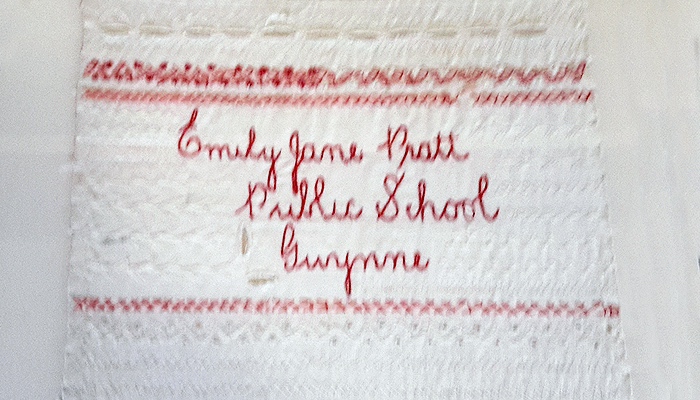 Emily Jane Pratt
Public School
Gwynne